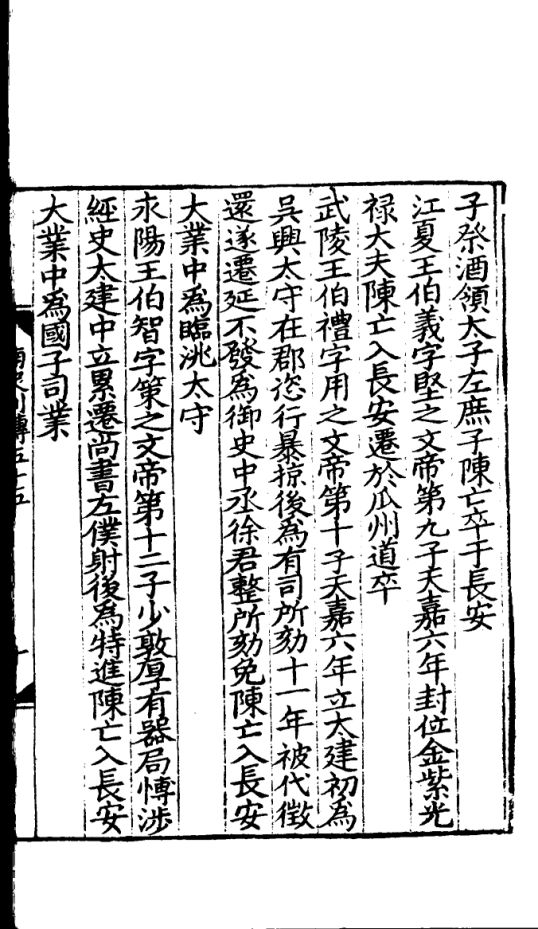 子祭酒領太子左庶子陳亡卒于長安
江夏王伯義字堅之文帝第九子天嘉六年封位金紫光
禄大夫陳亡入長安遷於瓜州道卒
武陵王伯禮字用之文帝第十子天嘉六年立太建初為
吳興太守在郡恣行暴掠後為有司所劾十一年被代徵
還遂遷延不發為御史中丞徐君整所劾免陳亡入長安
大業中為臨洮太守
永陽王伯智字策之文帝第十二子少敦厚有器局愽涉
經史太建中立累遷尚書左僕射後為特進陳亡入長安
大業中為國子司業